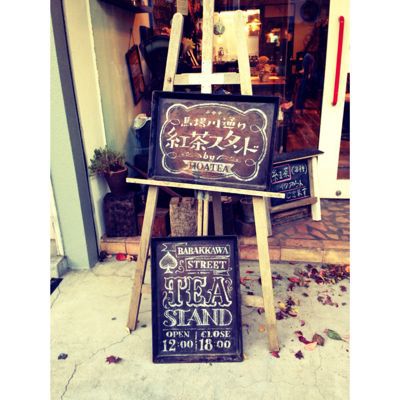 馬場川通り
紅茶スタンド
by
HOATEA
BABAKKAWA
STREET
TEA
STAND
OPEN CLOSE
12:00 18:00
紅茶